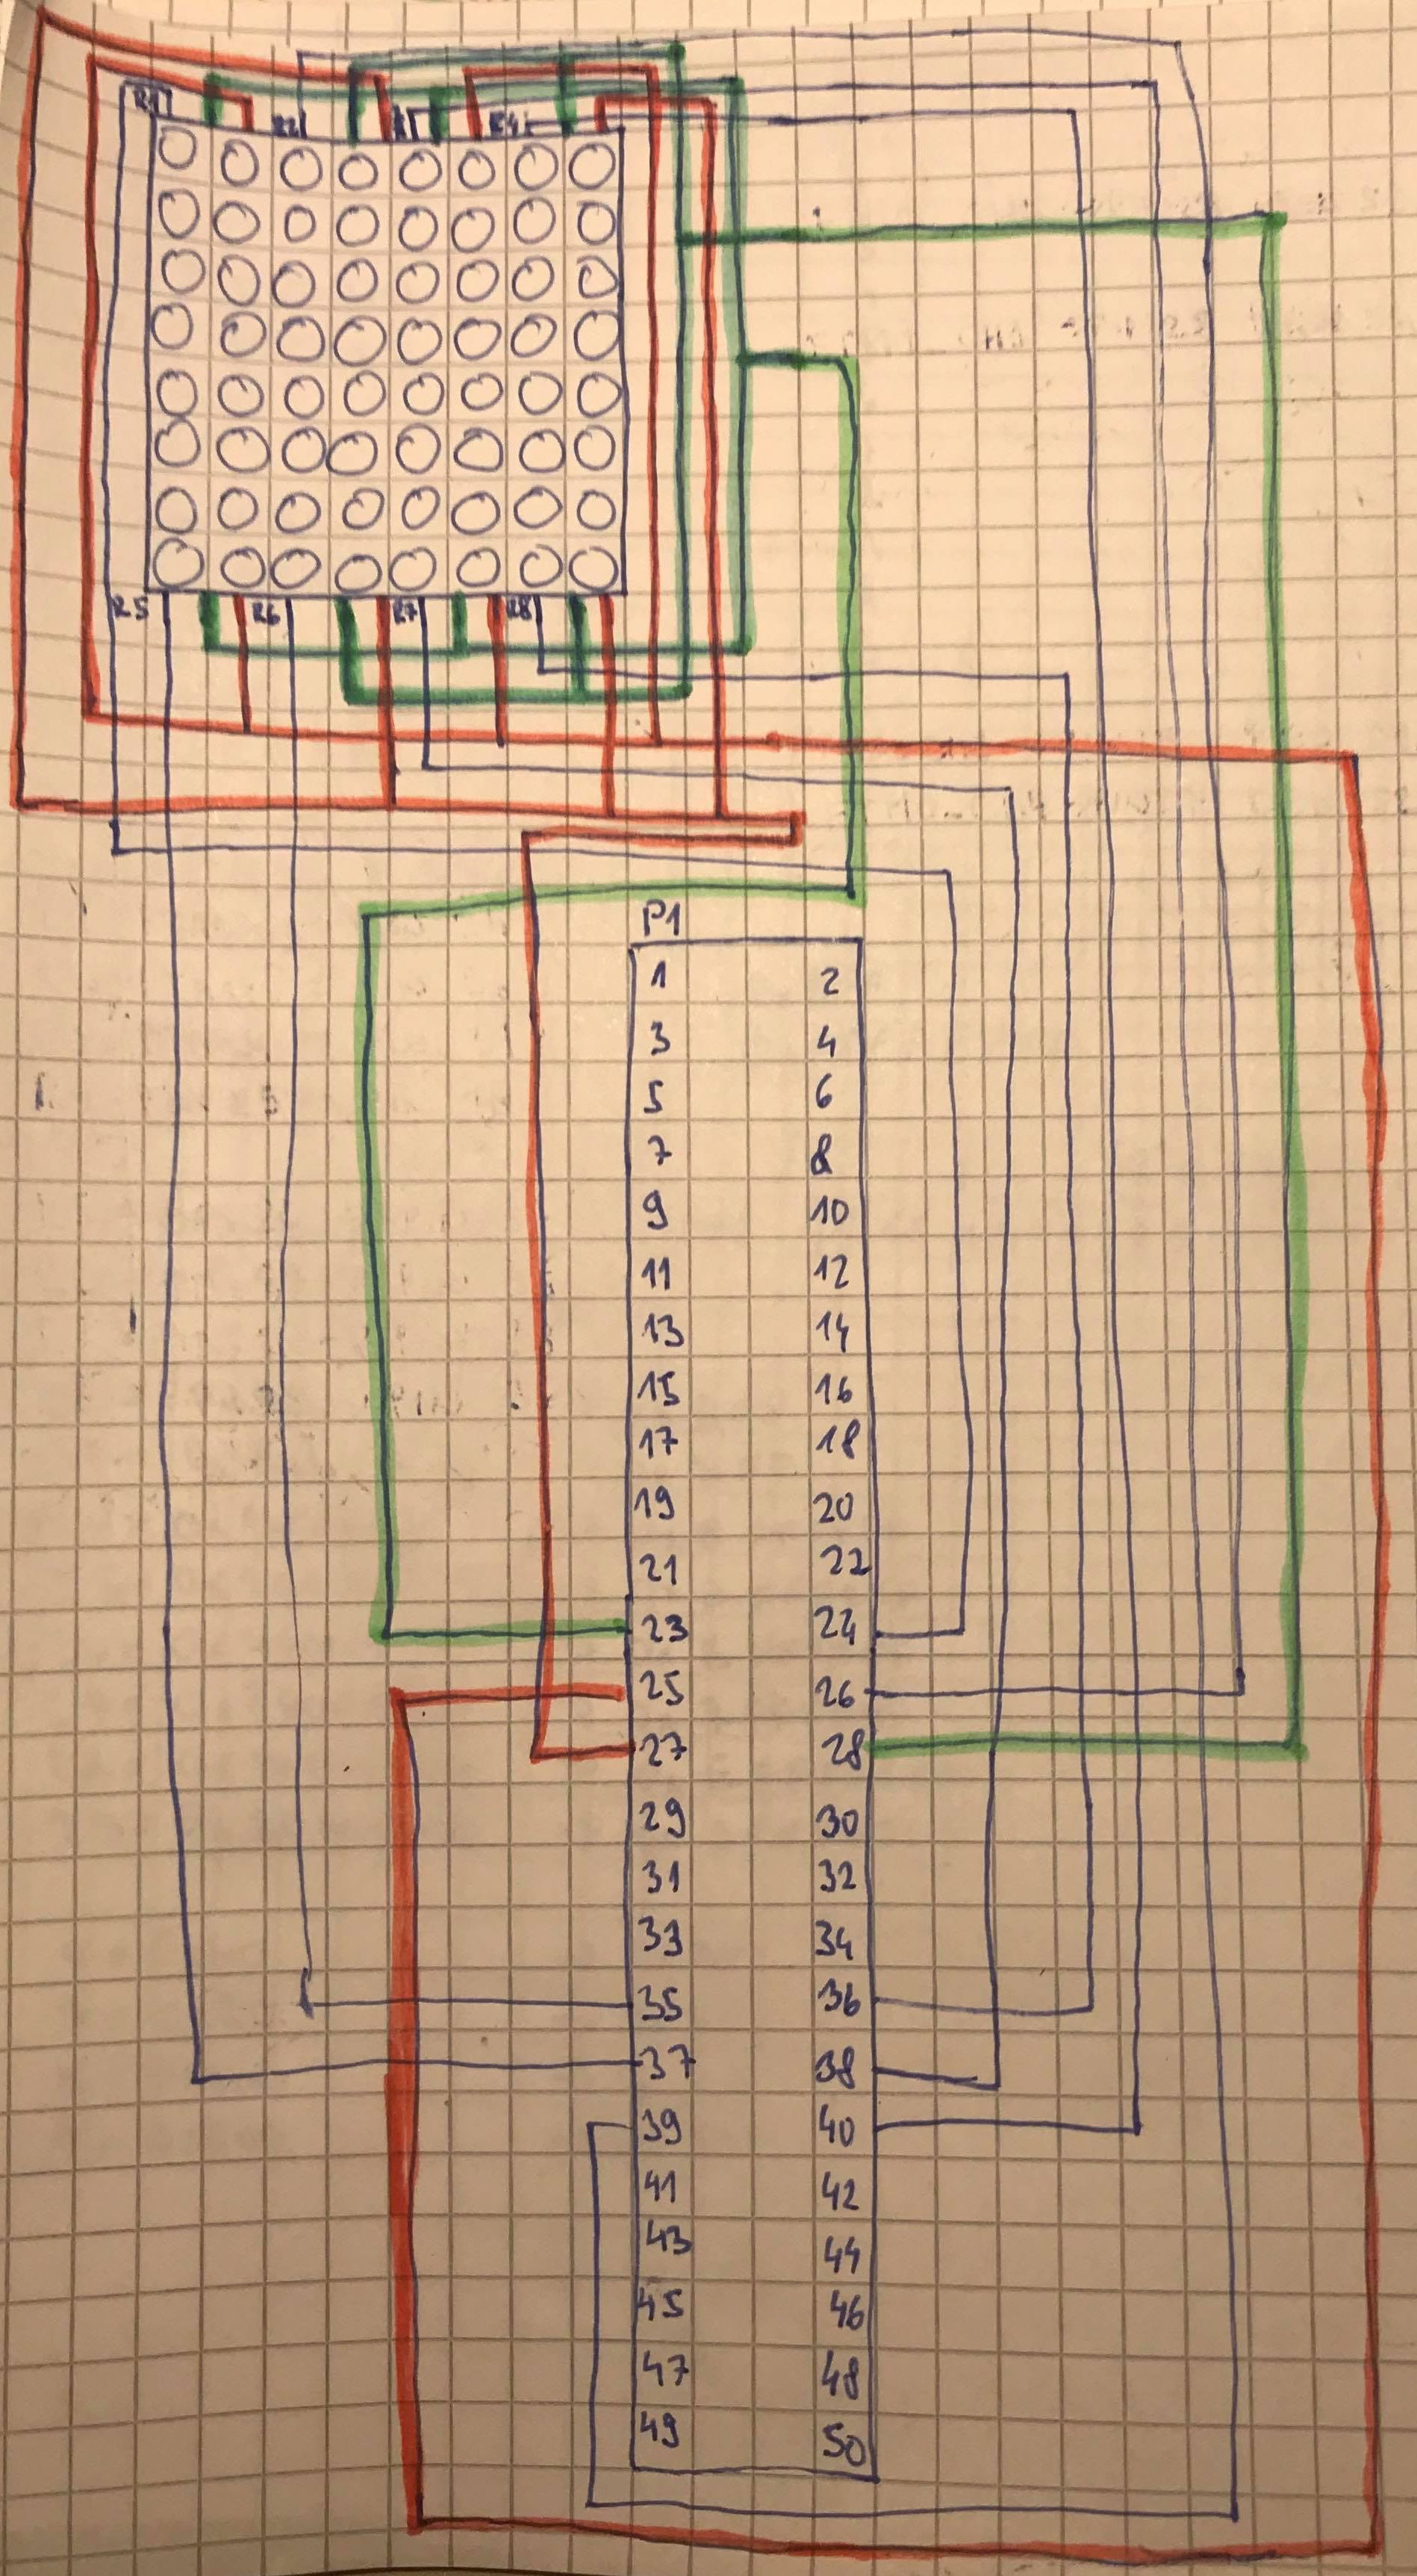 R1 R2 R4
R5 R6 R7 R8
P1
1 2
3 4
5 6
7 8
9 10
11 12
13 14
15 16
17 18
19 20
21 22
23 24
25 26
27 28
29 30
31 32
33 34
35 36
37 38
39 40
41 42
43 44
45 46
47 48
49 50